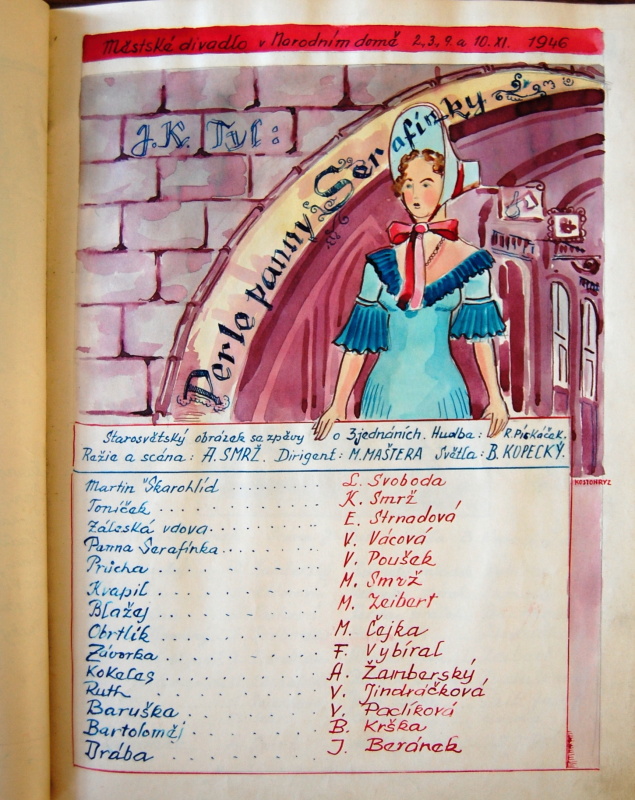 Městské divadlo v Národním domě 2., 3., 9. a 10. XI. 1946
J. K. Tyl:
Perle panny Serafínky
Starosvětský obrázek se zpěvy o 3 jednáních. Hudba: R. Piskáček.
Režie a scéna: A. SMRŽ. Dirigent: M. MAŠTERA Světla: B. KOPECKÝ.
KOSTOHRYZ
Martin Škarohlíd .......... L. Svoboda
Toníček .......... K. Smrž
Záleská vdova .......... E. Strnadová
Panna Serafínka .......... V. Vácová
Průcha .......... V. Poušek
Kvapil .......... M. Smrž
Blažej .......... M. Zeibert
Obrtlík .......... M. Čejka
Závorka .......... F. Vybíral
Kokeles .......... A. Žamberský
Ruth .......... V. Jindráčková
Baruška .......... V. Paclíková
Bartoloměj .......... B. Krška
Drába .......... J. Beránek